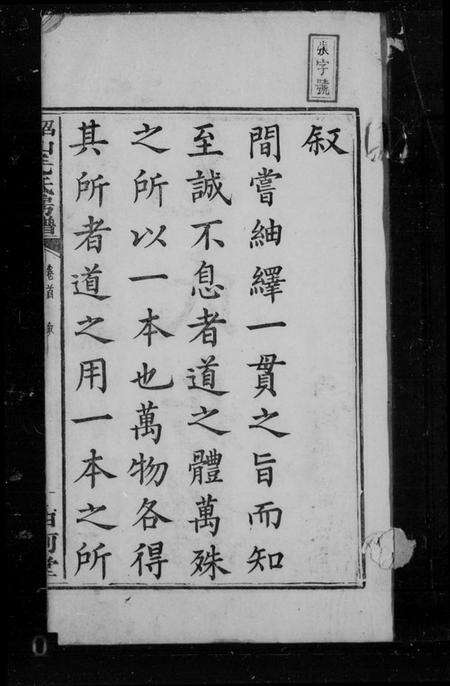 張字號
叙
間嘗紬繹一貫之旨而知
至誠不息者道之體萬殊
之所以一本也萬物各得
其所者道之用一本之所
韶山毛氏房譜
卷首
西河堂